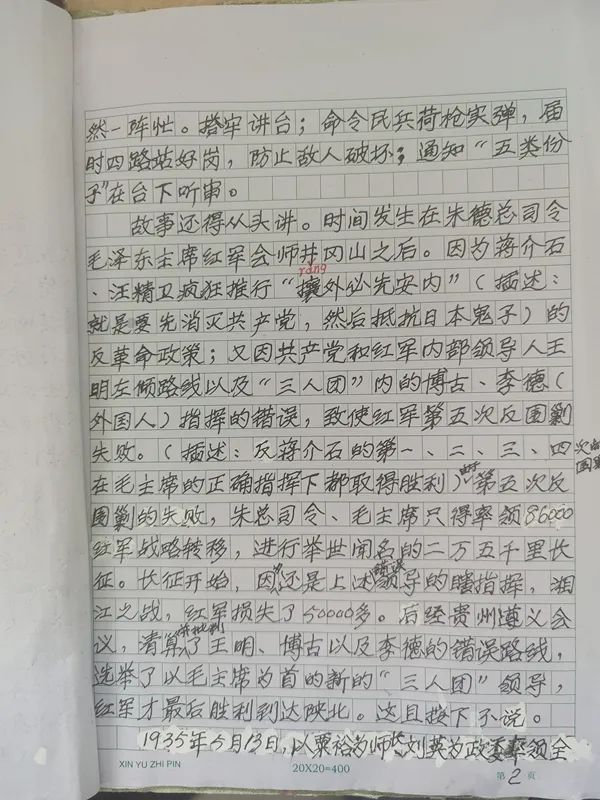 然一阵忙。搭牢讲台；命令民兵荷枪实弹，届
时四路站好岗，防止敌人破坏；通知“五类份
子”在台下听审。
故事还得从头讲。时间发生在朱德总司令
毛泽东主席红军会师井冈山之后。因为蒋介石
rang
、汪精卫疯狂推行“攘外必先安内”（描述：
就是要先消灭共产党，然后抵抗日本鬼子）的
反革命政策；又因共产党和红军内部领导人王
明左倾路线以及“三人团”内的博古、李德（
外国人）指挥的错误，致使红军第五次反围剿
失败。（描述：反蒋介石的第一、二、三、四次的围剿
在毛主席的正确指挥下都取得胜利）第五次反
围剿的失败，朱总司令、毛主席只得率领86000
红军战略转移，进行举世闻名的二万五千里长
征。长征开始，因还是上述错误领导的瞎指挥，湘
江之战，红军损失了50000多。后经贵州遵义会
议，清算并批判了王明、博古以及李德的错误路线，
选举了以毛主席为首的新的“三人团”领导，
红军才最后胜利到达陕北。这且按下不说。
1935年5月13日，以粟裕为师长刘英为政委率领全
XIN YU ZHI PIN 20X20=400 第2页